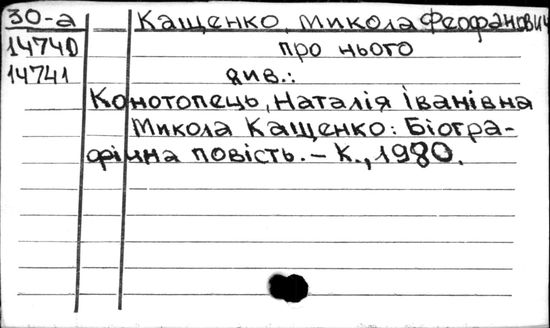 30-а Кащенко, Микола Феофанович
14740 про нього
14741 див.:
Конотопець, Наталія Іванівна
Микола Кащенко: Біогра-
фічна повість. – К., 1980.